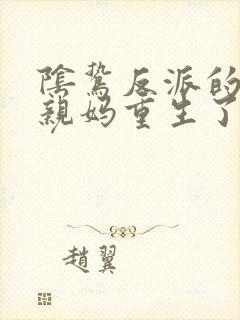 陰鷙反派的
親媽重生了
趙翼